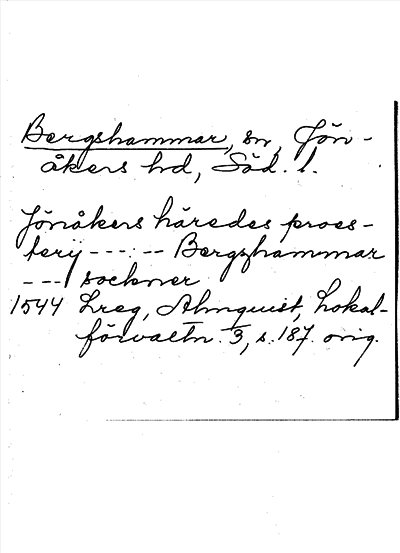 Bergshammar, sn, Jön-
åkers hd, Söd. l.
Jönåkers häredes proes-
terij ---:-- Bergzhammar
--- sockner
1544 Lreg, Almquist, Lokal-
förvaltn. 3, s. 187. orig.